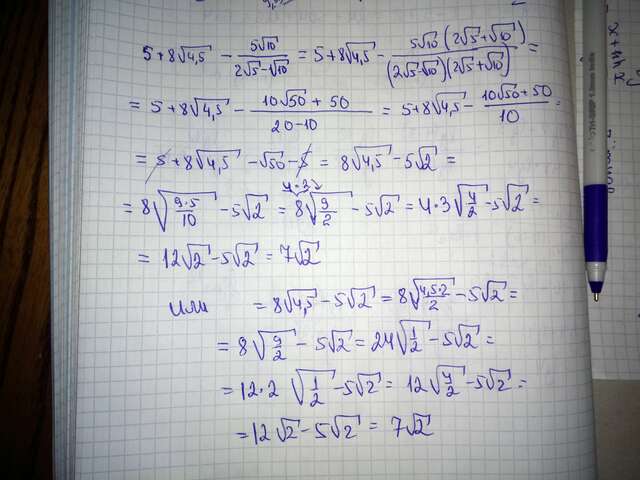 5+8√4,5 - 5√10/(2√5-√10) = 5+8√4,5 - 5√10(2√5+√10)/((2√5-√10)(2√5+√10)) =
= 5+8√4,5 - (10√50+50)/(20-10) = 5+8√4,5 - (10√50+50)/10 =
= 5+8√4,5 - √50 - 5 = 8√4,5 - 5√2 =
4·3
= 8√(9·5/10) - 5√2 = 8√(9/2) - 5√2 = 4·3√(4/2) - 5√2 =
= 12√2 - 5√2 = 7√2
или = 8√4,5 - 5√2 = 8√(4,5·2/2) - 5√2 =
= 8√(9/2) - 5√2 = 24√(1/2) - 5√2 =
= 12·2 √(1/2) - 5√2 = 12√(4/2) - 5√2 =
= 12√2 - 5√2 = 7√2